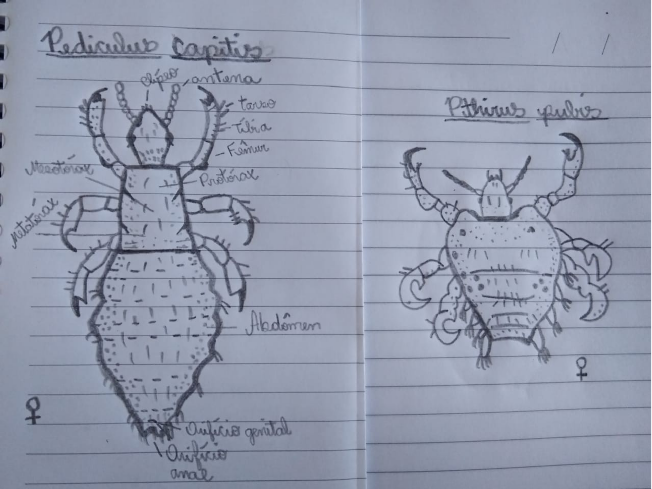 Pediculus capitis
clípeo
antena
tarso
Tíbia
Fêmur
Mesotórax
Protórax
Metatórax
Abdômen
♀
Orifício genital
Orifício
anal
Pthirus pubis
♀